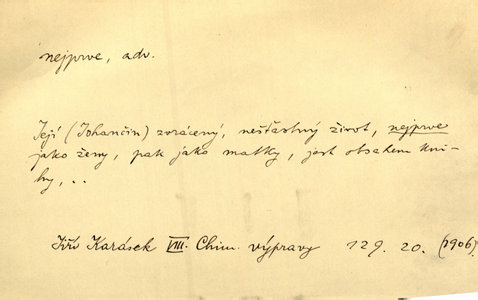 nejprve, adv.
Její (Johančin) zvrácený, nešťastný život, nejprve
jako ženy, pak jako matky, jest obsahem kni-
hy, ..
Jiří Karásek VIII. Chim. výpravy 129. 20. (1906).